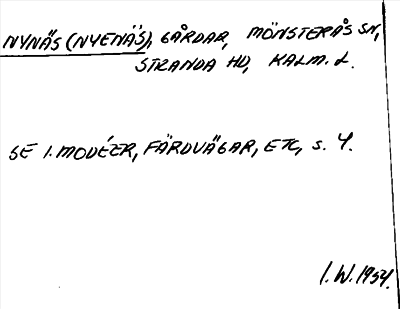 NYNÄS (NYENÄS), GÅRDAR, MÖNSTERÅS SN,
STRANDA HD, KALM. L.
SE I. MODÉER, FÄRDVÄGAR, ETC, s. 4.
I. W. 1954.